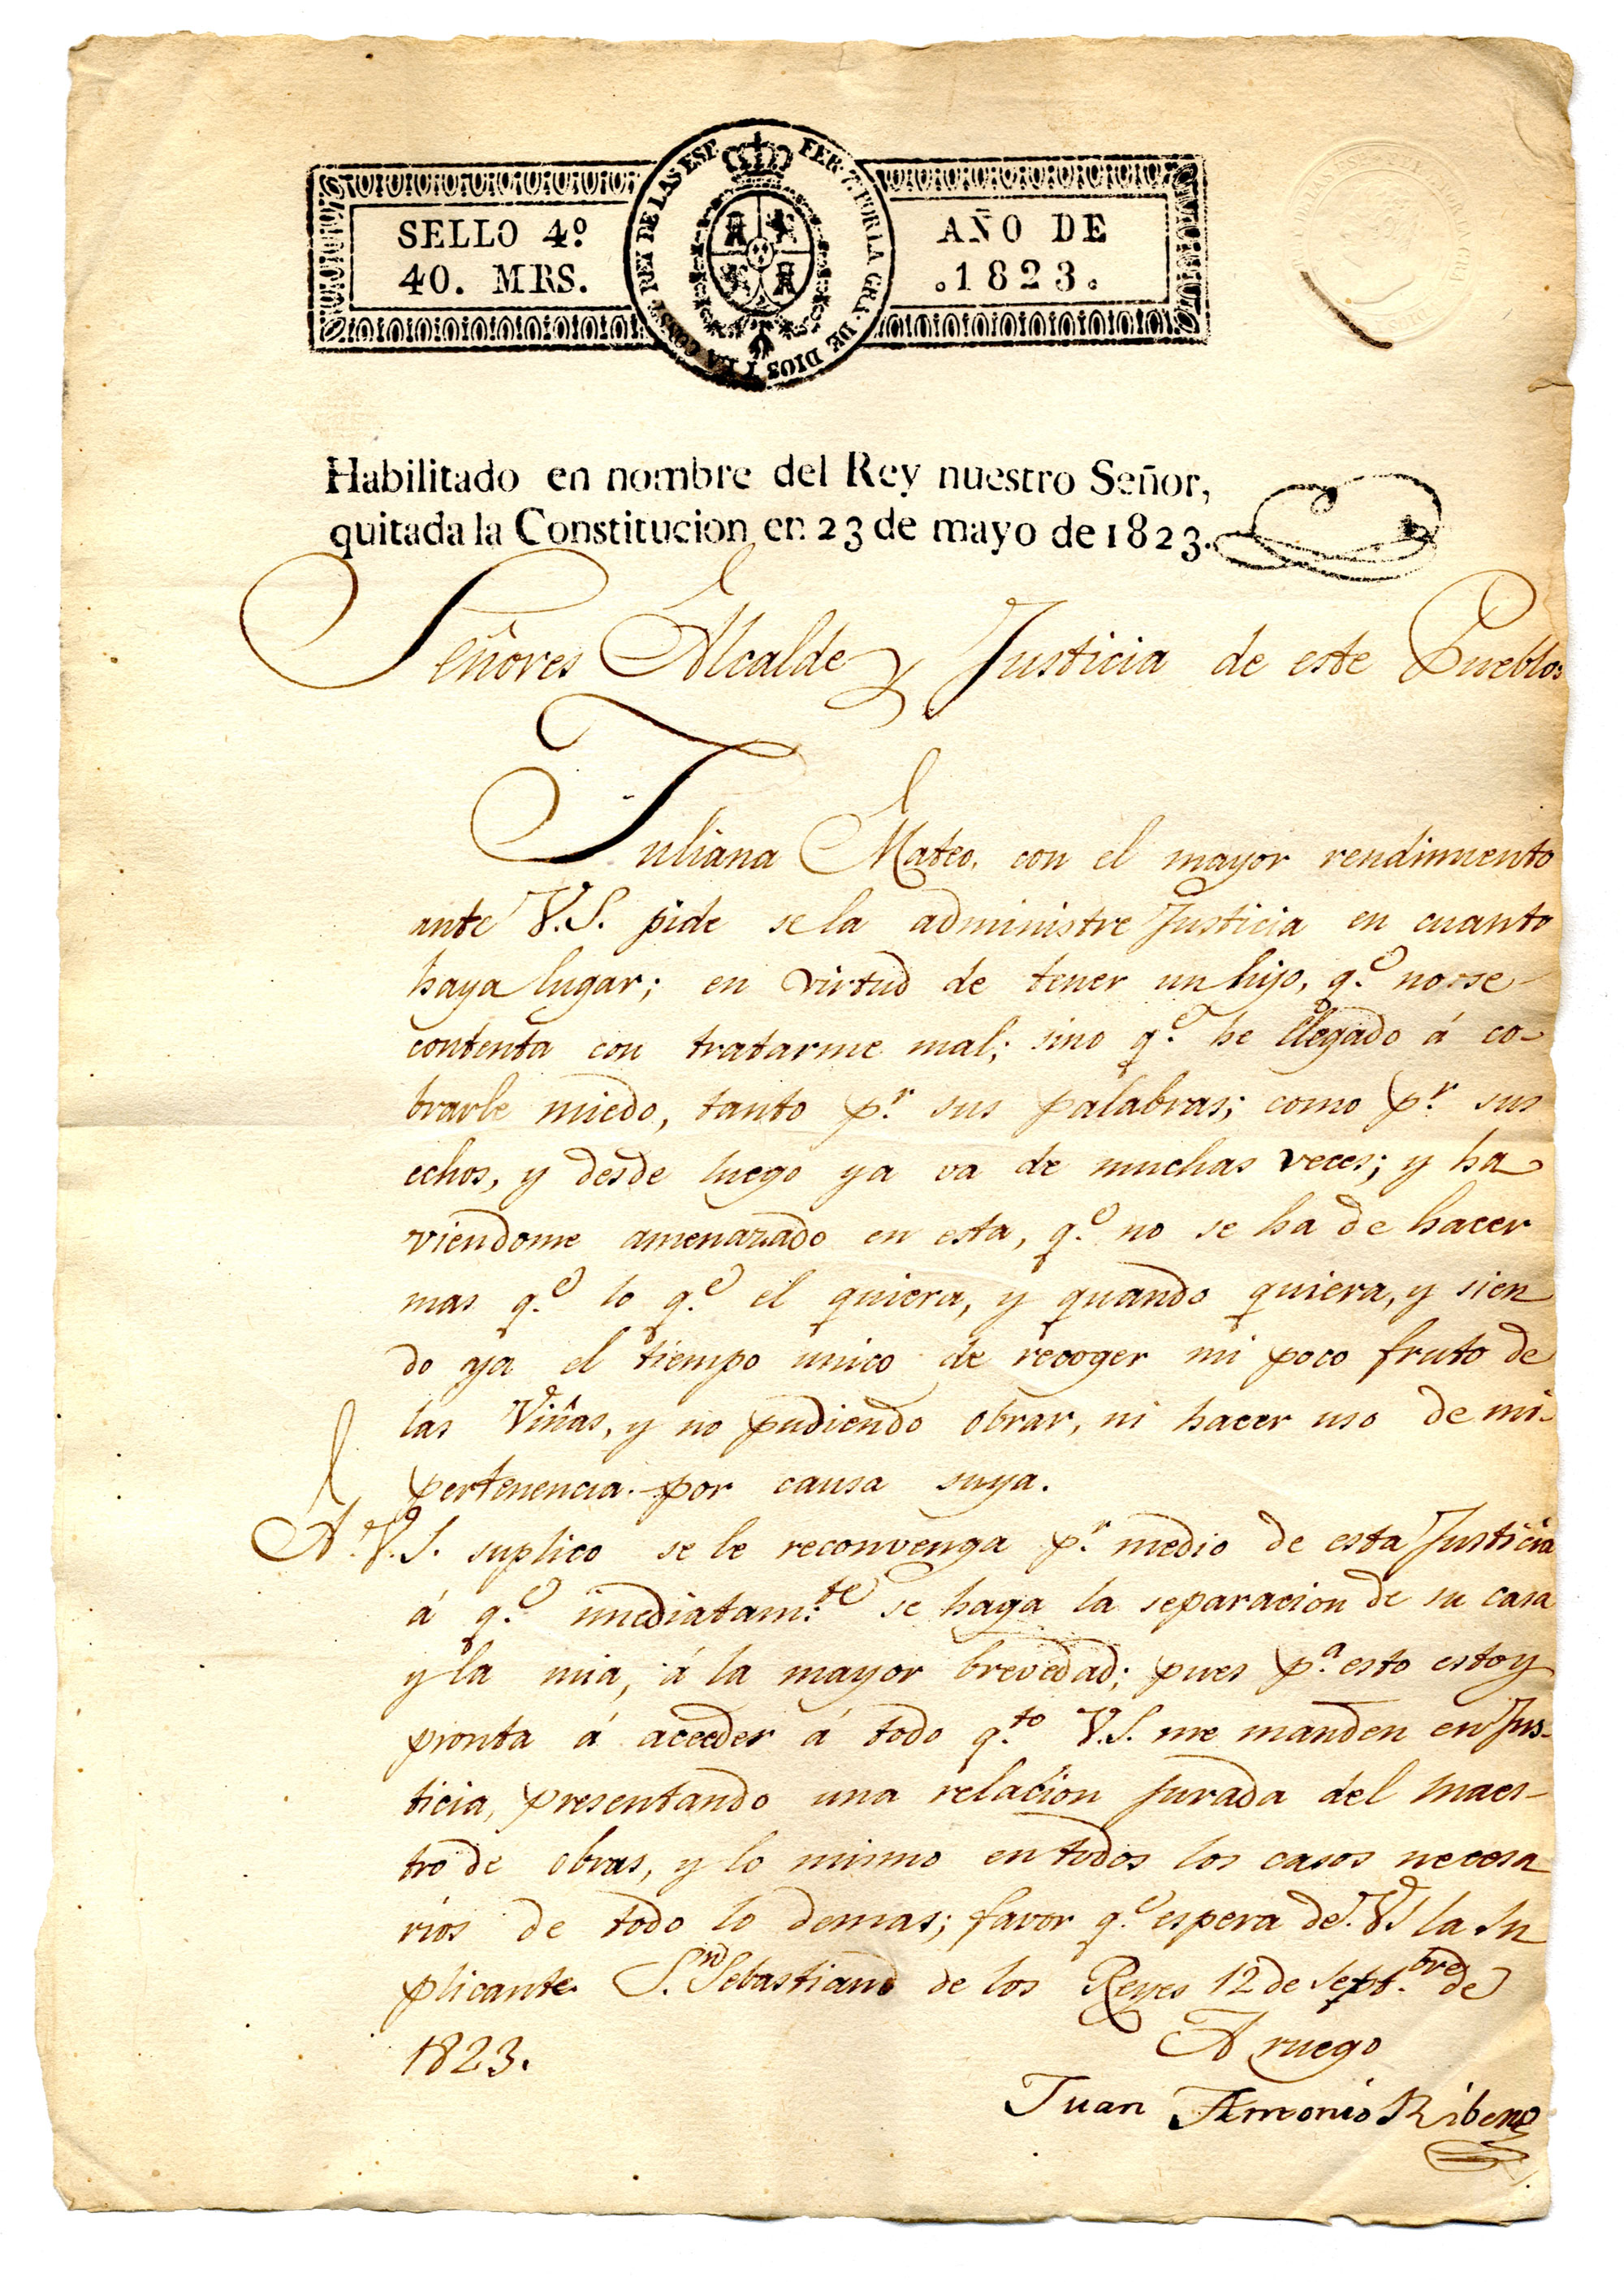 SELLO 4º
40. MRS.
FER. 7. POR LA GRA. DE DIOS Y LA CONS. REY DE LAS ESP.
AÑO DE
.1823.
Habilitado en nombre del Rey nuestro Señor,
quitada la Constitucion en 23 de mayo de 1823.
Señores Alcalde y Justicia de este Pueblo:
Juliana Mateo, con el mayor rendimiento
ante V.S. pide se la administre Justicia en cuanto
haya lugar; en virtud de tener un hijo, q.e no se
contenta con tratarme mal; sino q.e he llegado á co-
brarle miedo, tanto p.r sus palabras; como p.r sus
echos, y desde luego ya va de muchas veces; y ha
viendome amenazado en esta, q.e no se ha de hacer
mas q.e lo q.e el quiera, y quando quiera, y sien
do ya el tiempo unico de recoger mi poco fruto de
las Viñas, y no pudiendo obrar, ni hacer uso de mi
pertenencia por causa suya.
A V.S. suplico se le reconvenga p.r medio de esta Justicia
á q.e imediatam.te se haga la separacion de su casa
y la mia, á la mayor brevedad; pues p.a esto estoy
pronta á acceder á todo q.to V.S. me manden en Jus-
ticia, presentando una relacion jurada del maes-
tro de obras, y lo mismo en todos los casos necesa
rios de todo lo demas; favor q.e espera de V.S la Su
plicante S.n Sebastiand de los Reyes 12 de Sept.bre de
1823.
A ruego
Juan Antonio Ribera